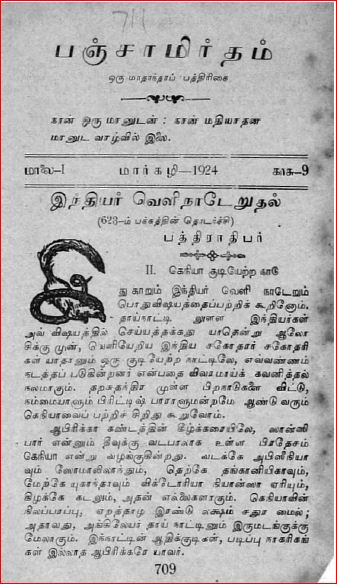 711
பஞ்சாமிர்தம்
ஒரு மாதாந்தரப் பத்திரிகை
நான் ஒரு மானுடன் : நான் மதியாதன
மானுட வாழ்வில் இலை.
மாலை–I மார்கழி–1924 காசு–9
இந்தியர் வெளிநாடேறுதல்
(623-ம் பக்கத்தின் தொடர்ச்சி)
பத்திராதிபர்
II. கெனியா குடியேற்ற நாடு
து காறும் இந்தியர் வெளி நாடேறும்
பொதுவிஷயத்தைப்பற்றிக் கூறினோம்.
தாய்நாட்டி லுள்ள இந்தியர்கள்
அவ் விஷயத்தில் செய்யத்தக்கது யாதென்று ஆலோ
சிக்கு முன், வெளியேறிய இந்திய சகோதரர் சகோதரி
கள் யாதானும் ஒரு குடியேற்ற நாட்டிலே, எவ்வண்ணம்
நடத்தப் படுகின்றனர் என்பதை விவரமாய்க் கவனித்தல்
நலமாகும். தற்சுதந்திர முள்ள பிறநாடுகளை விட்டு,
நம்மையாளும் பிரிட்டிஷ் பாராளுமன்றமே ஆண்டு வரும்
கெனியாவைப் பற்றிச் சிறிது கூறுவோம்.
ஆபிரிக்கா கண்டத்தின் கீழ்க்கரையிலே, ஸான்ஸி
பார் என்னும் தீவுக்கு வடபாலாக உள்ள பிரதேசம்
கெனியா என்று வழங்குகின்றது. வடக்கே அபிஸீனியா
வும் ஸோமாலிலாந்தும், தெற்கே தங்கானியிகாவும்,
மேற்கே யுகாந்தாவும் விக்டோரியா நியான்ஸா ஏரியும்,
கிழக்கே கடலும், அதன் எல்லைகளாகும். கெனியாவின்
நிலப்பரப்பு, ஏறத்தாழ இரண்டு லக்ஷம் சதுர மைல்;
அதாவது, ஆங்கிலேயர் தாய் நாட்டினும் இருமடங்குக்கு
மேலாகும். இந்நாட்டின் ஆதிக்குடிகள், படிப்பு நாகரிகங்
கள் இல்லாத ஆபிரிக்கரே யாவர்.
709